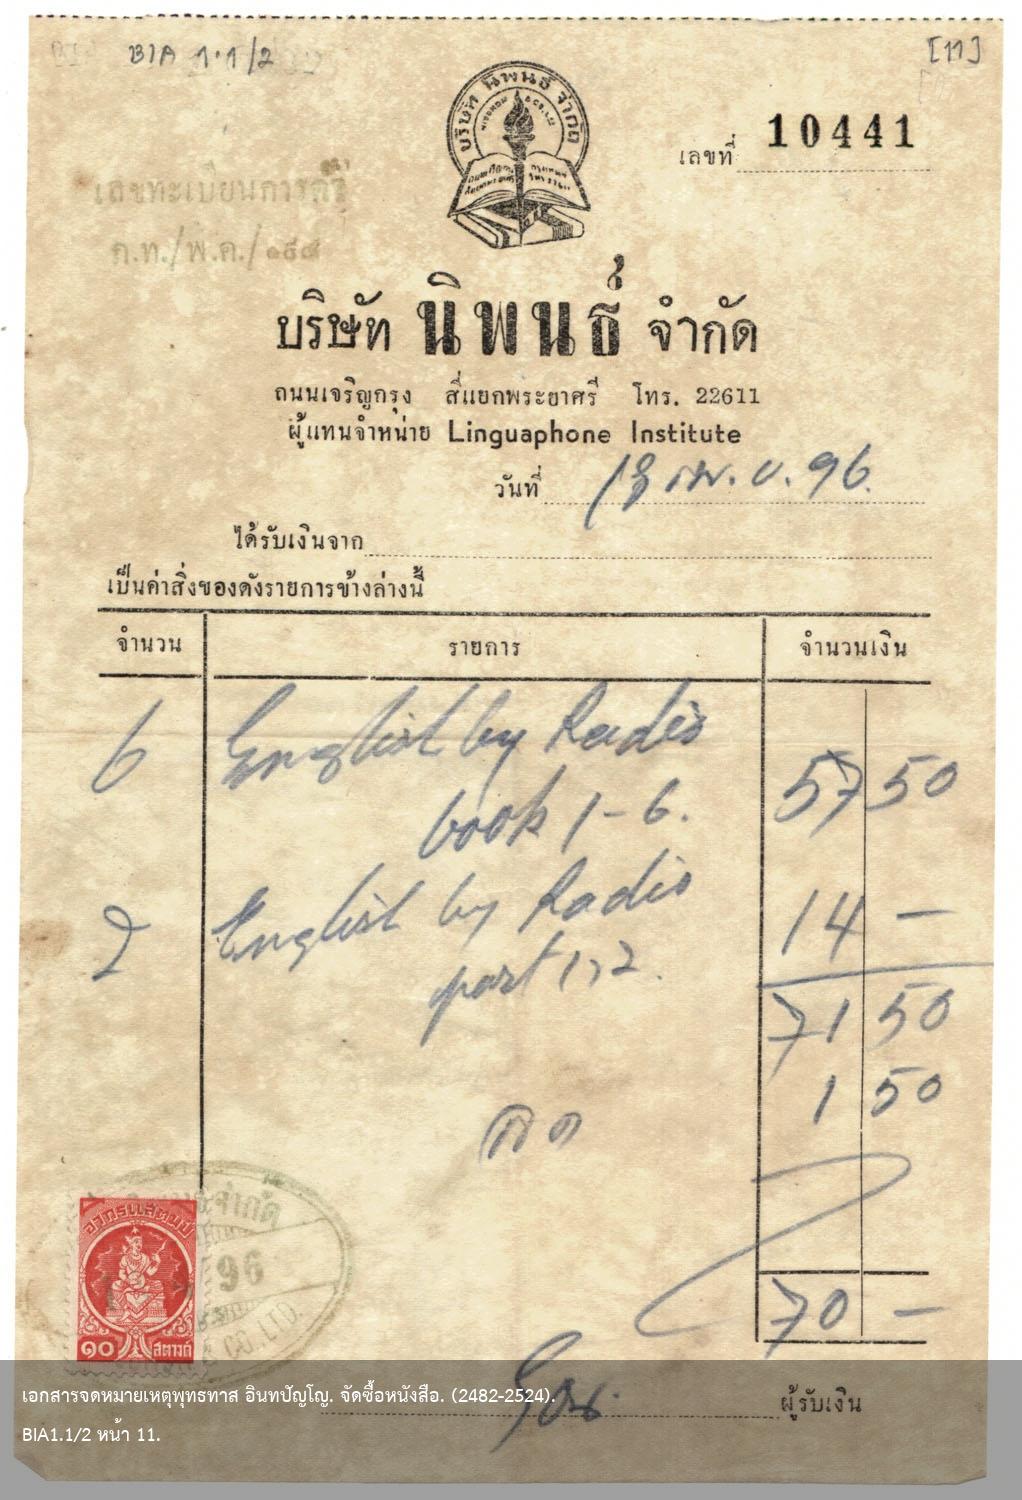 BIA ๑.๑/2
[11]
บริษัท นิพนธ์ จำกัด
เลขที่ 10441
เลขทะเบียนการค้า
ค.ท./พ.ค./๑๘๔
บริษัท นิพนธ์ จำกัด
ถนนเจริญกรุง สี่แยกพระยาศรี โทร. 22611
ผู้แทนจำหน่าย Linguaphone Institute
วันที่ เม.ย. 96.
ได้รับเงินจาก
เป็นค่าสิ่งของดังรายการข้างล่างนี้
จำนวน รายการ จำนวนเงิน
6 English by Radio
book 1-6. 57 50
2 English by Radio 14 —
part 1, 2.
71 50
ลด 1 50
70 —
อากรแสตมป์
๑๐ สตางค์
จำกัด
96
CO., LTD.
ผู้รับเงิน
เอกสารจดหมายเหตุพุทธทาส อินทปัญโญ. จัดซื้อหนังสือ. (2482-2524).
BIA1.1/2 หน้า 11.